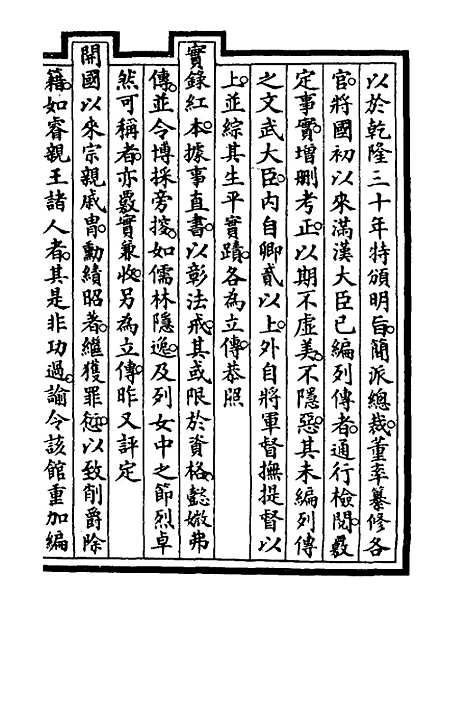 以於乾隆三十年特頒明旨簡派總裁董率纂修各
官將國初以來滿漢大臣已編列傳者通行檢閱覈
定事實增刪考正以期不虛美不隱惡其未編列傳
之文武大臣內自卿貳以上外自將軍督撫提督以
上並綜其生平實蹟各為立傳恭照
實錄紅本據事直書以彰法戒其或限於資格懿媺弗
傳並令博採旁搜如儒林隱逸及列女中之節烈卓
然可稱者亦覈實兼收另為立傳昨又評定
開國以來宗親戚胄勳績昭著繼獲罪愆以致削爵除
籍如睿親王諸人者其是非功過諭令該館重加編